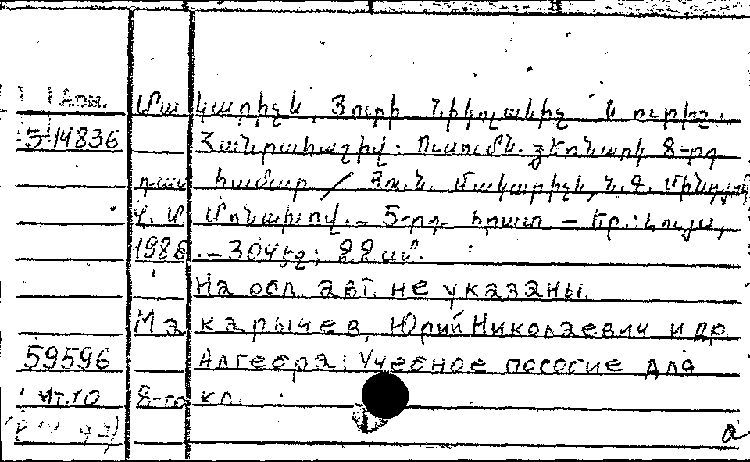 Арм. Մակարիչև, Յուրի Նիկոլաևիչ և ուրիշ.
5-14836 Հանրահաշիվ: Ուսումն. ձեռնարկ 8-րդ
դաս համար / Յու. Ն. Մակարիչև, Ն. Գ. Մինդյուկ
Մոնախով. – 5-րդ հրատ – Եր.: Լույս,
1986. – 304 էջ; 22 սմ.
На осл. авт. не указаны.
Макарычев, Юрий Николаевич и др
59596 Алгебра: Учебное пособие для
ит.10 8-го кл.
а